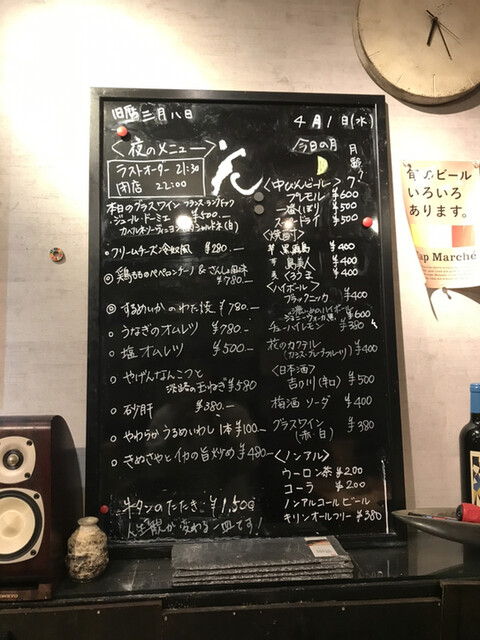 旧暦 三月八日
4月1日(水)
<夜のメニュー>
ラストオーダー 21:30
閉店 22:00
今日の月
月齢 7
本日のグラスワイン フランス・ラングドック
・ジュール・ドーミエ ¥500.—
カベルネソーヴィニヨン シャルドネ(白)
・クリームチーズ冷奴風 ¥280.—
◎鶏もものペペロンチーノ & さんしょ風味 ¥780.—
◎するめいかのわた焼 ¥780.—
○うなぎのオムレツ ¥780.—
○塩オムレツ ¥500.—
○やげんなんこつと
淡路の玉ねぎ ¥580
○砂肝 ¥380.—
○やわらかうるめいわし 1本 ¥100.—
○きぬさやとイカの旨炒め ¥480.—
牛タンのたたき ¥1,500
人生観が変わる一皿です!
<中びんビール>
プレモル ¥600
一番しぼり ¥500
スーパードライ ¥500
<焼酎>
芋 黒霧島 ¥400
芋 島美人 ¥400
麦 くろうま ¥400
<ハイボール>
ブラックニッカ ¥400
濃いめのハイボール
ジョニーウォーカー黒 ¥600
チューハイレモン ¥380
花のカクテル ¥400
(カシス・グレープフルーツ)
<日本酒>
吉乃川(辛口) ¥500
梅酒 ソーダ ¥400
グラスワイン ¥380
(赤・白)
<ノンアル>
ウーロン茶 ¥200
コーラ ¥200
ノンアルコールビール
キリンオールフリー ¥380
ビール
いろいろ
あります。
ap Marché